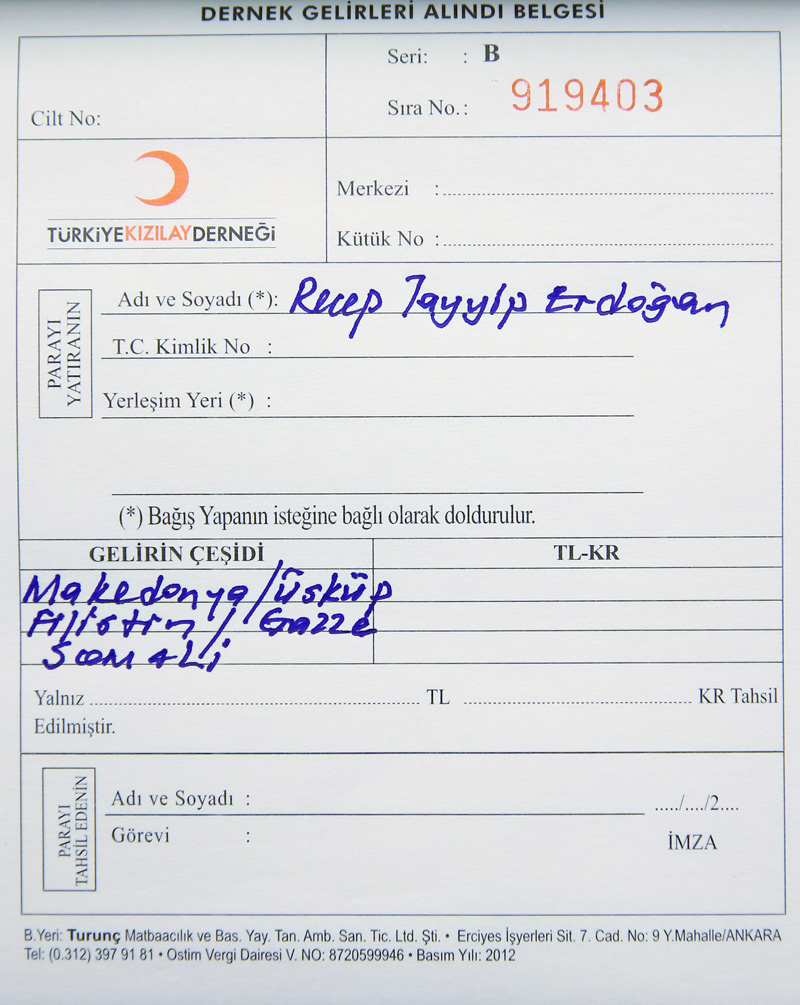 DERNEK GELİRLERİ ALINDI BELGESİ
Seri: : B
Cilt No:
Sıra No.: 919403
TÜRKİYEKIZILAYDERNEĞİ
Merkezi :
Kütük No :
PARAYI YATIRANIN
Adı ve Soyadı (*): Recep Tayyip Erdoğan
T.C. Kimlik No :
Yerleşim Yeri (*) :
(*) Bağış Yapanın isteğine bağlı olarak doldurulur.
GELİRİN ÇEŞİDİ TL-KR
Makedonya/Üsküp
Filistin/Gazze
Somali
Yalnız ........ TL ........ KR Tahsil
Edilmiştir.
PARAYI TAHSİL EDENİN
Adı ve Soyadı : ...../..../2....
Görevi : İMZA
B.Yeri: Turunç Matbaacılık ve Bas. Yay. Tan. Amb. San. Tic. Ltd. Şti. • Erciyes İşyerleri Sit. 7. Cad. No: 9 Y.Mahalle/ANKARA
Tel: (0.312) 397 91 81 • Ostim Vergi Dairesi V. NO: 8720599946 • Basım Yılı: 2012